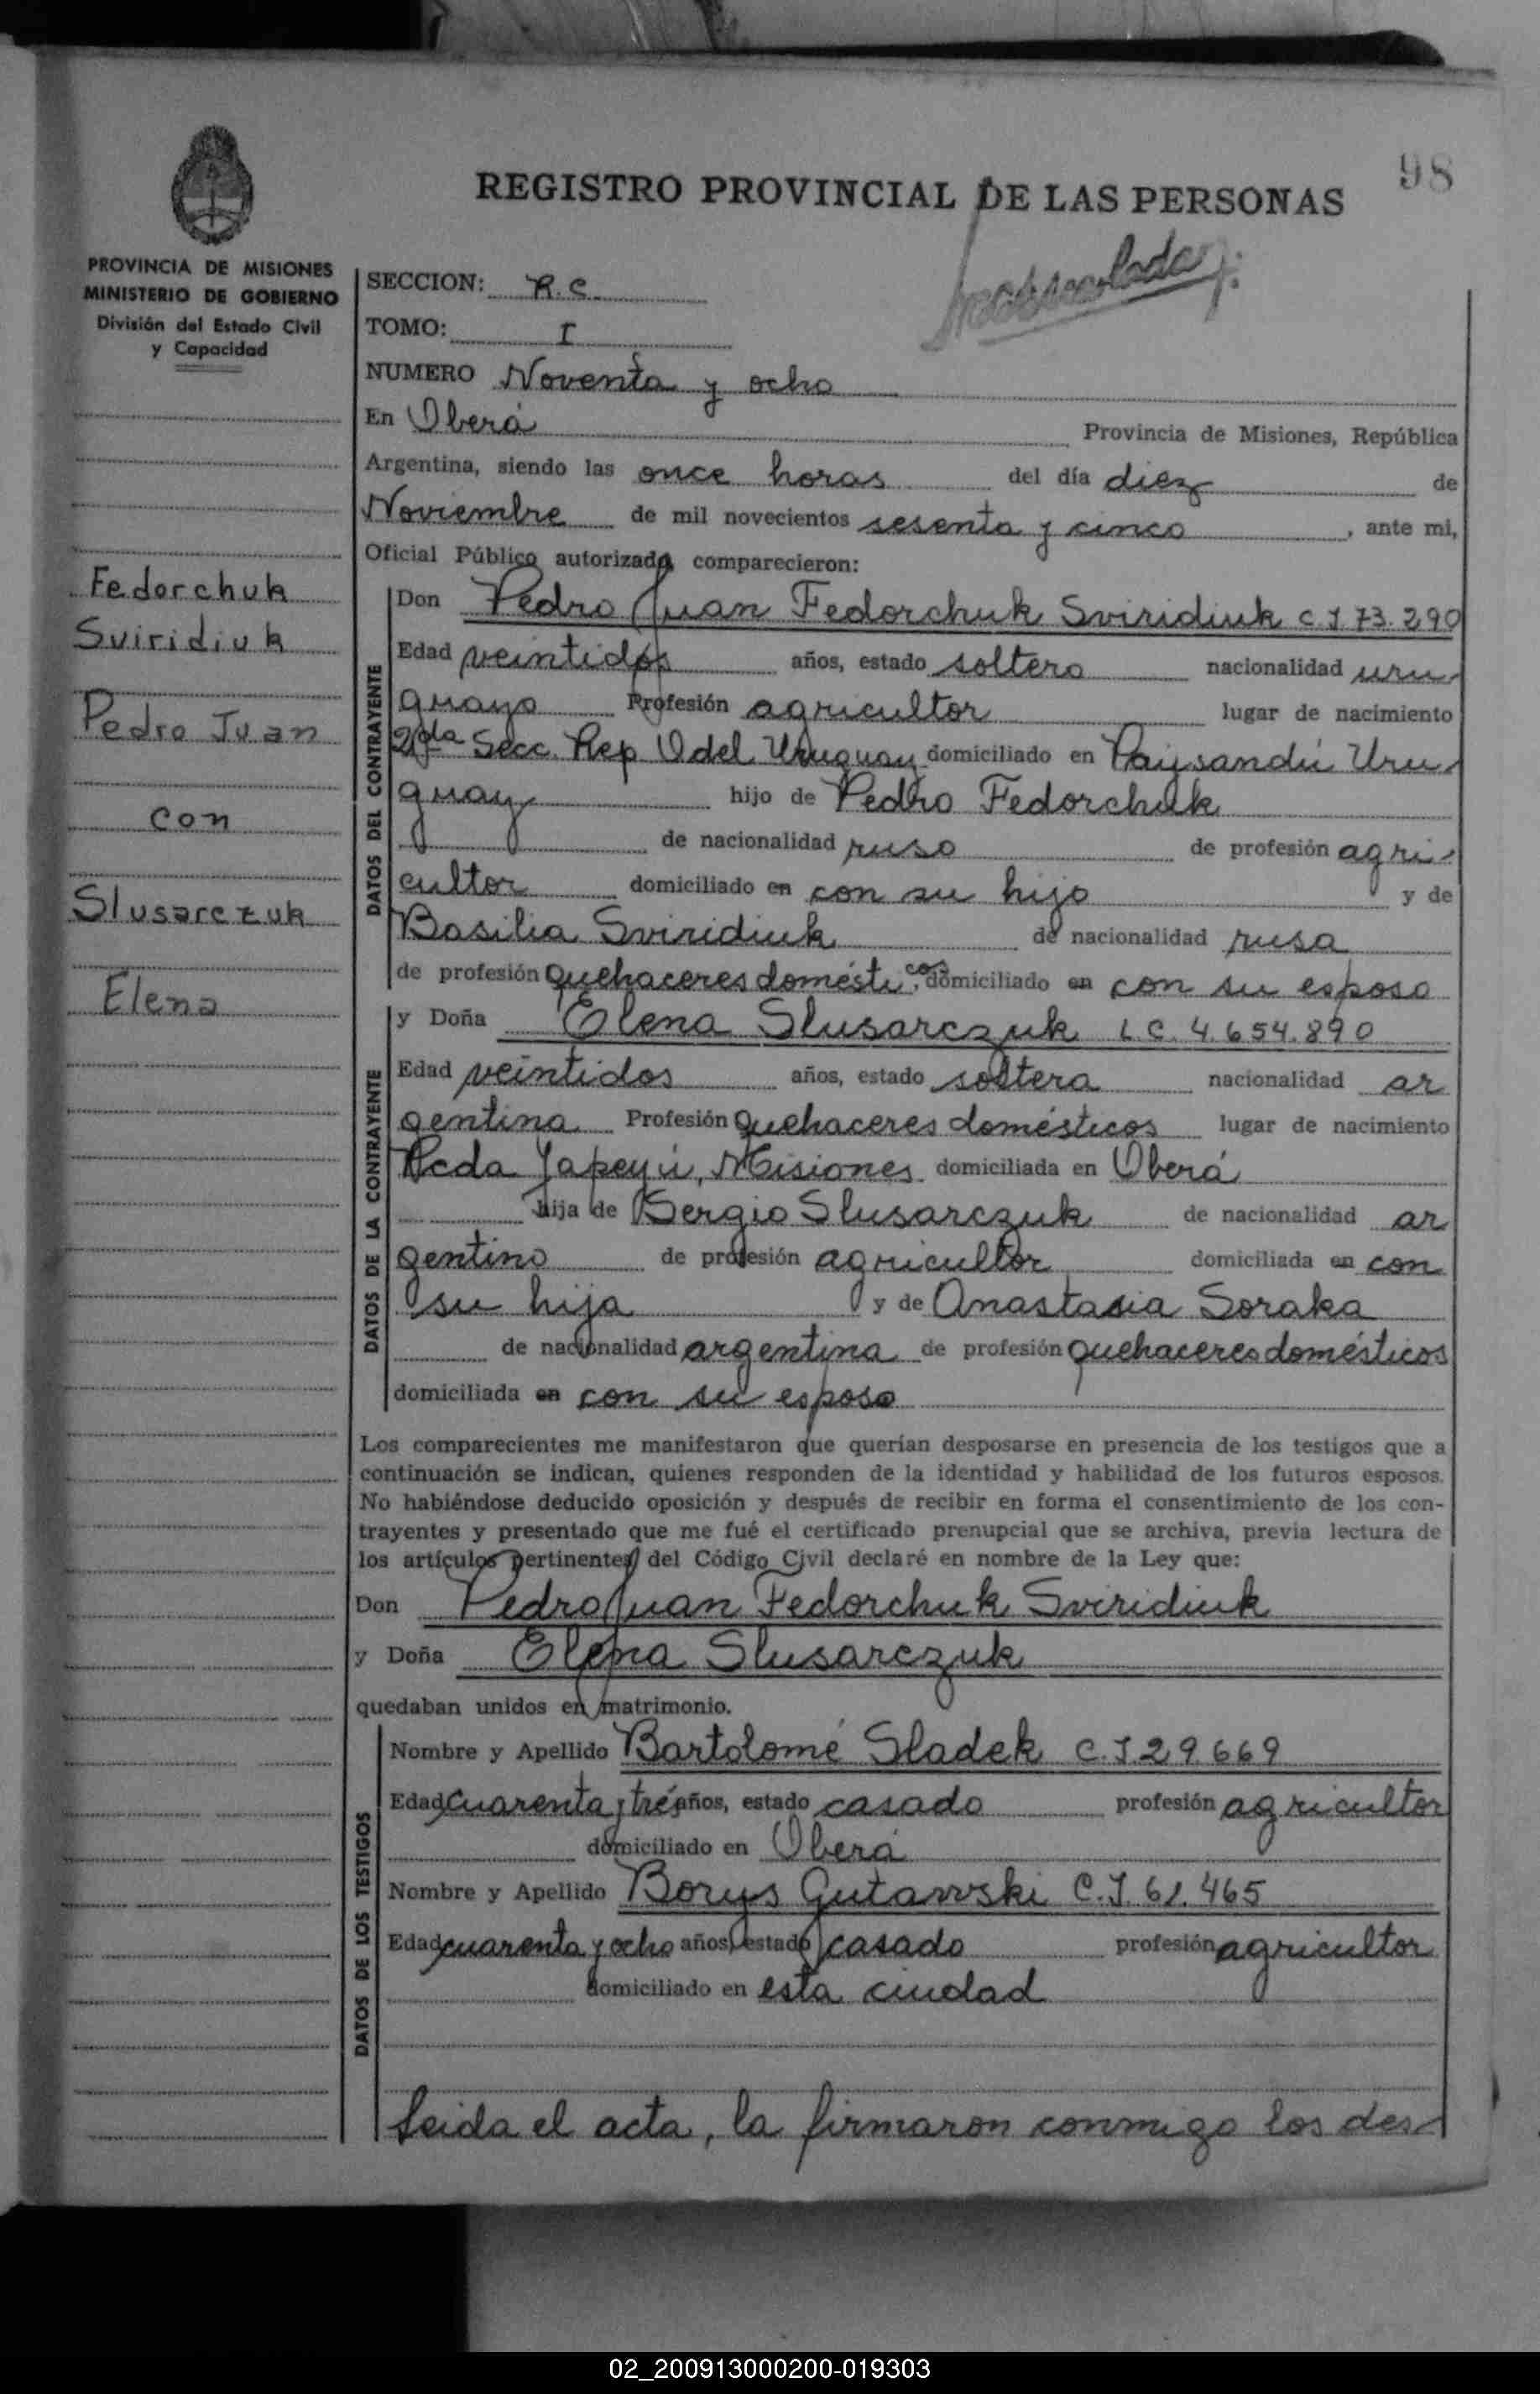 98
REGISTRO PROVINCIAL DE LAS PERSONAS
PROVINCIA DE MISIONES
MINISTERIO DE GOBIERNO
División del Estado Civil
y Capacidad
Fedorchuk
Sviridiuk
Pedro Juan
con
Slusarczuk
Elena
SECCION: R.C.
TOMO: I
NUMERO Noventa y ocho
En Oberá Provincia de Misiones, República
Argentina, siendo las once horas del día diez de
Noviembre de mil novecientos sesenta y cinco, ante mi,
Oficial Público autorizado comparecieron:
DATOS DEL CONTRAYENTE
Don Pedro Juan Fedorchuk Sviridiuk C.I 73.290
Edad veintidos años, estado soltero nacionalidad uru-
guayo Profesión agricultor lugar de nacimiento
2da Secc. Rep. O del Uruguay domiciliado en Paysandú Uru-
guay hijo de Pedro Fedorchuk
de nacionalidad ruso de profesión agri-
cultor domiciliado en con su hijo y de
Basilia Sviridiuk de nacionalidad rusa
de profesión quehaceres domésticos domiciliado en con su esposo
DATOS DE LA CONTRAYENTE
y Doña Elena Slusarczuk L.C. 4.654.890
Edad veintidos años, estado soltera nacionalidad ar
gentina Profesión quehaceres domésticos lugar de nacimiento
Pcda Yapeyú, Misiones domiciliada en Oberá
hija de Sergio Slusarczuk de nacionalidad ar
gentino de profesión agricultor domiciliada en con
su hija y de Anastasia Soraka
de nacionalidad argentina de profesión quehaceres domésticos
domiciliada en con su esposo
Los comparecientes me manifestaron que querían desposarse en presencia de los testigos que a
continuación se indican, quienes responden de la identidad y habilidad de los futuros esposos.
No habiéndose deducido oposición y después de recibir en forma el consentimiento de los con-
trayentes y presentado que me fué el certificado prenupcial que se archiva, previa lectura de
los artículos pertinentes del Código Civil declaré en nombre de la Ley que:
Don Pedro Juan Fedorchuk Sviridiuk
y Doña Elena Slusarczuk
quedaban unidos en matrimonio.
DATOS DE LOS TESTIGOS
Nombre y Apellido Bartolomé Sladek C.I 29.669
Edad cuarenta y tres años, estado casado profesión agricultor
domiciliado en Oberá
Nombre y Apellido Borys Gutawski C.I. 61.465
Edad cuarenta y ocho años, estado casado profesión agricultor
domiciliado en esta ciudad
Leida el acta, la firmaron conmigo los des-
02_200913000200-019303